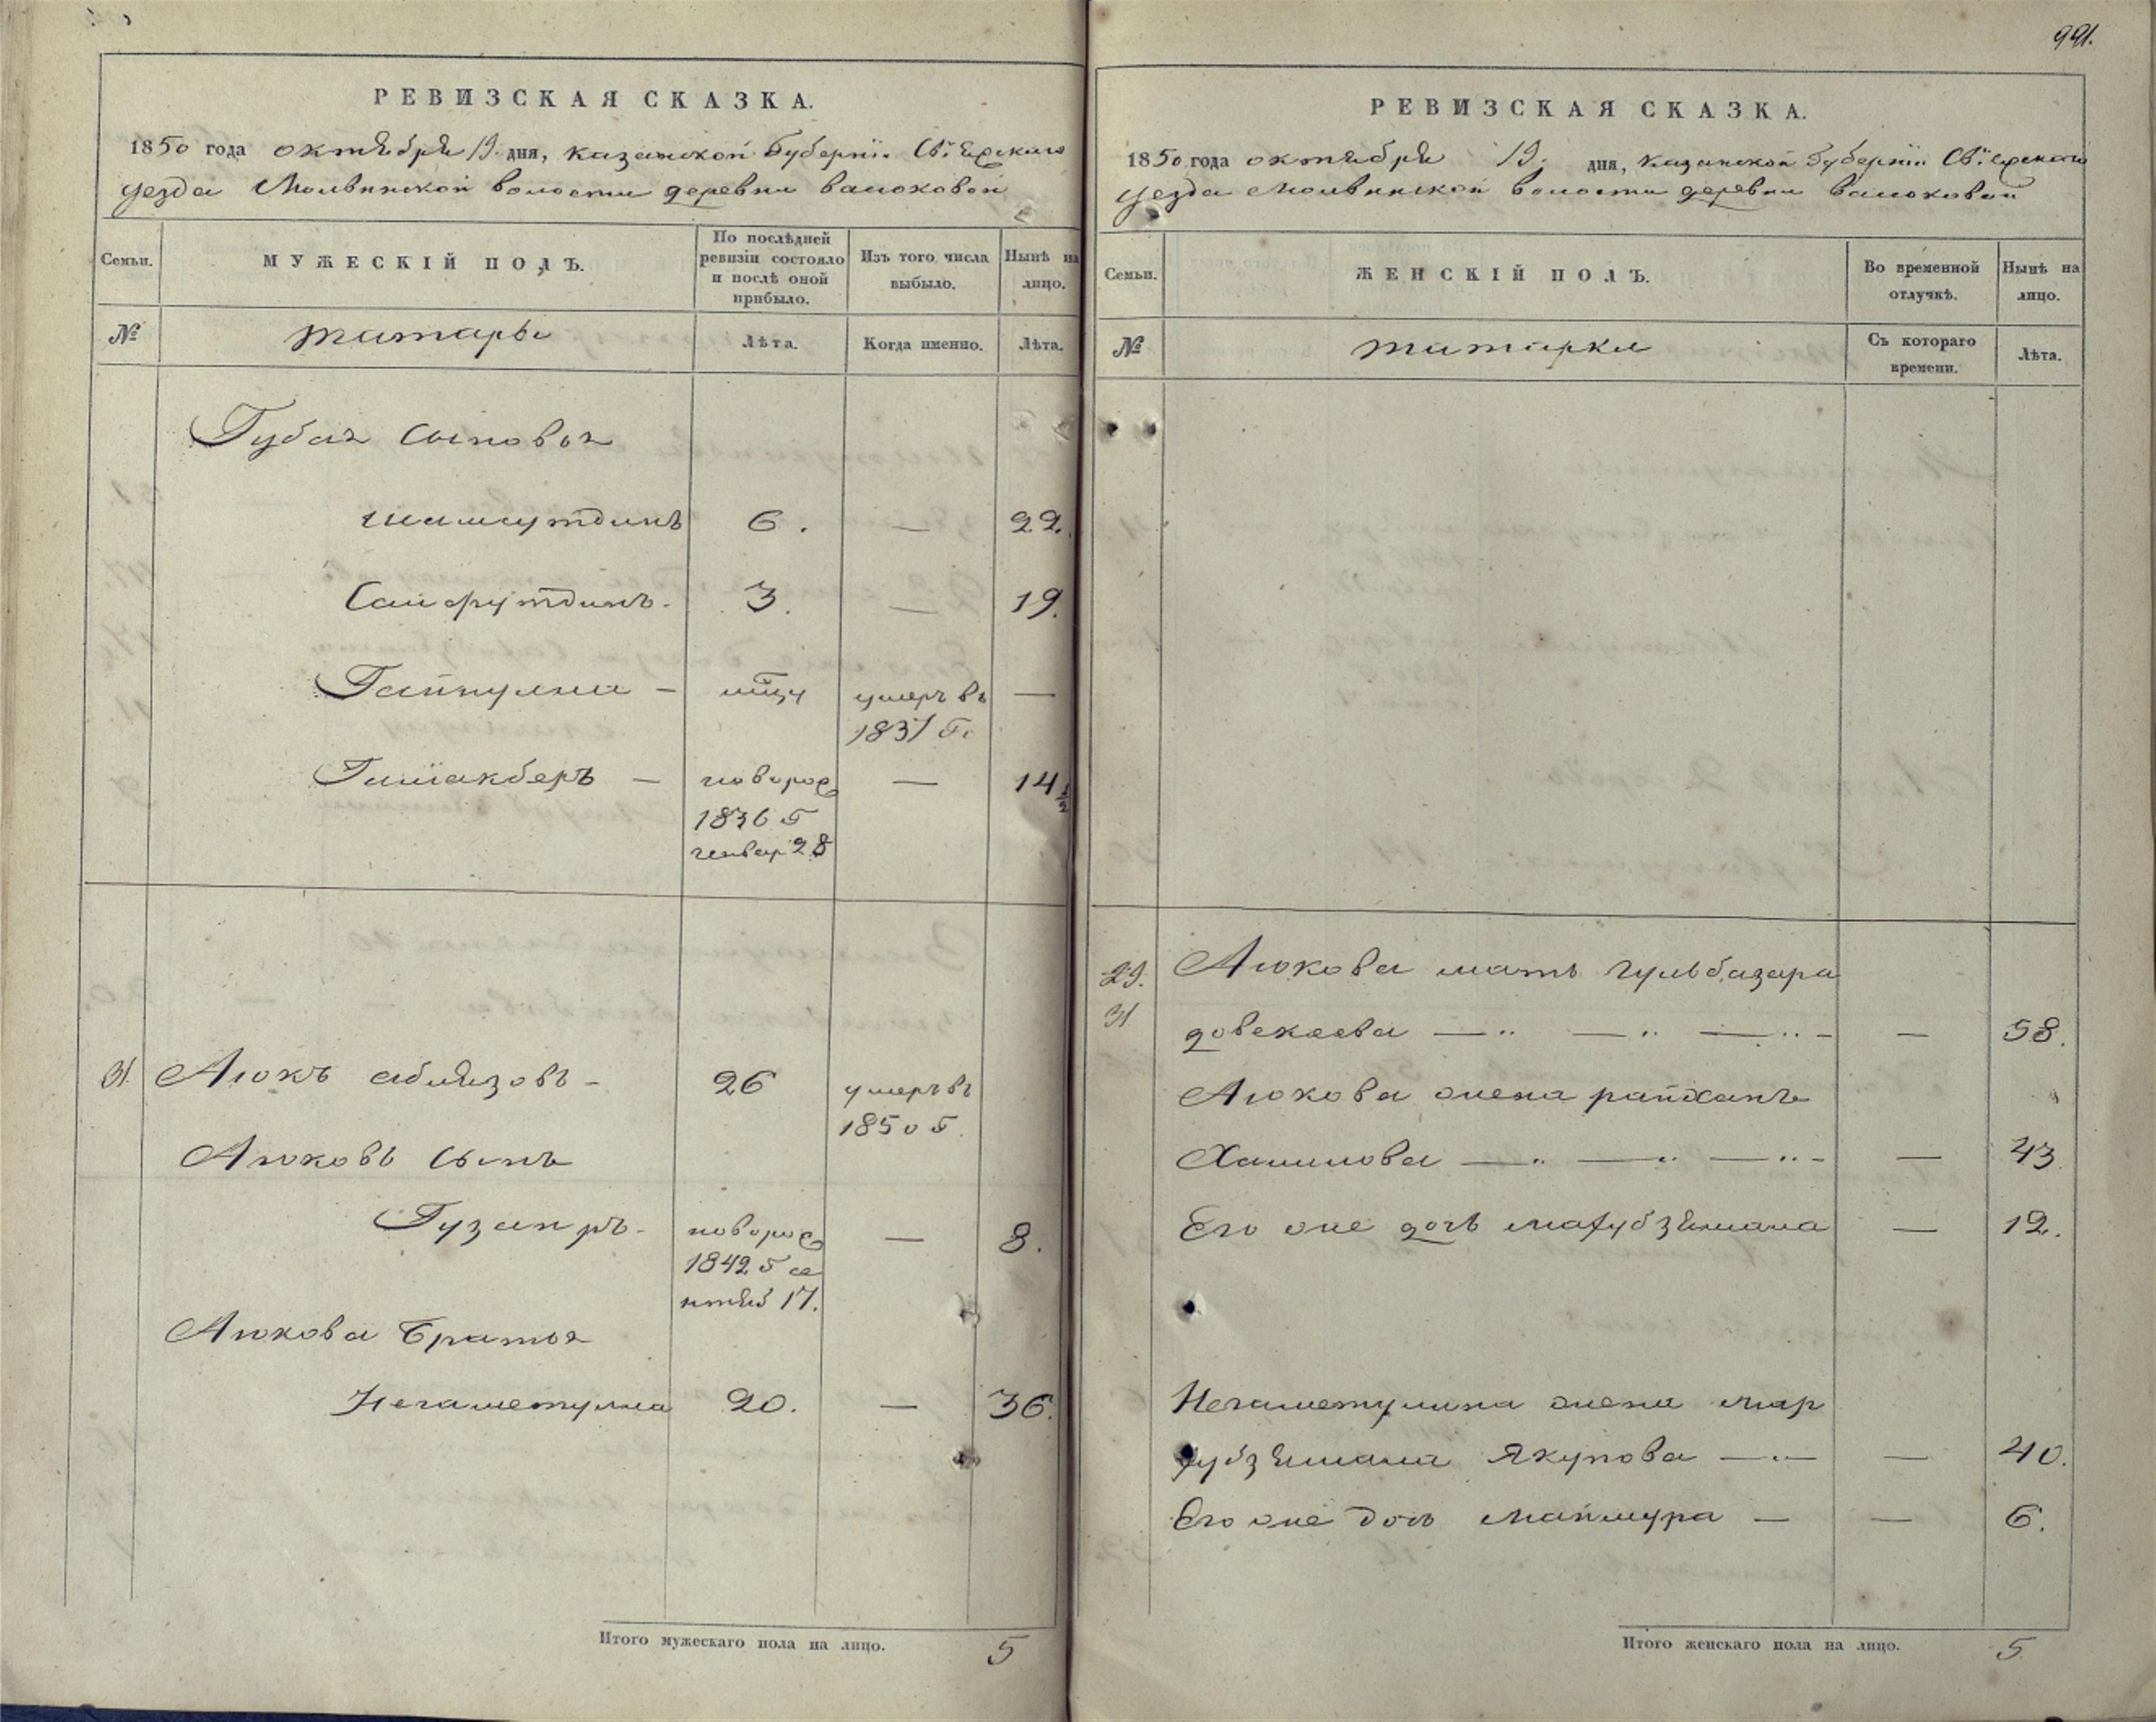 991.
РЕВИЗСКАЯ СКАЗКА.
1850 года октября 19. дня, казанской Губернiи Свiяжскаго
уезда Молвинской волости деревни валюховой
Семьи. МУЖЕСКIЙ ПОЛЪ. По послѣдней ревизiи состояло и послѣ оной прибыло. Изъ того числа выбыло. Нынѣ на лицо.
№ татары Лѣта. Когда именно. Лѣта.
Губая сыновья
шамсутдинъ 6. — 22.
Саифутдинъ 3. — 19.
Гайнулла — умеръ въ —
1837 г.
Гилiакберъ — новорож — 14 1/2
1836 г
генвар 28
31. Аюкъ абдязовъ - 26 умеръ въ
1850 г.
Аюковъ сынъ
Гузаиръ - новорож — 8.
1842 г се
нтяб 17.
Аюкова братья
Негаметулла 20. — 36.
Итого мужескаго пола на лицо. 5
РЕВИЗСКАЯ СКАЗКА.
1850 года октября 19. дня, казанской Губернiи Свiяжскаго
уезда Молвинской волости деревни валюховой
Семьи. ЖЕНСКIЙ ПОЛЪ. Во временной отлучкѣ. Нынѣ на лицо.
№ татарки Съ котораго времени. Лѣта.
29. Аюкова мать гульбазара
31 довекаева — „ — „ — „ - — 58.
Аюкова жена райханъ
Халилова — „ — „ — „ - — 43.
Его же дочь махубзямала — 12.
Негаметулина жена мар
губзямала Якупова — „ — — 40.
Его же дочь маймура — — 6.
Итого женскаго пола на лицо. 5